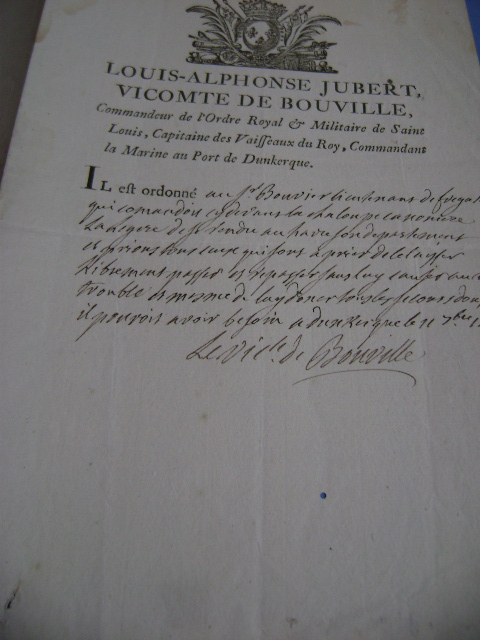 LOUIS-ALPHONSE JUBERT,
VICOMTE DE BOUVILLE,
Commandeur de l'Ordre Royal & Militaire de Saint
Louis, Capitaine des Vaisseaux du Roy, Commandant
la Marine au Port de Dunkerque.
IL est ordonné au Sr. Bouvier lieutenant de fregat
qui comandoit cy devant la chaloupe canoniere
de se rendre au havre son departement
et prions tous ceux qui sont a prier de le laisser
librement passer et repasser sans luy causer aucun
trouble et mesme de luy doner tous les secours dont
il pouroit avoir besoin a dunkerque le 11 7bre
Le Victe. de Bouville